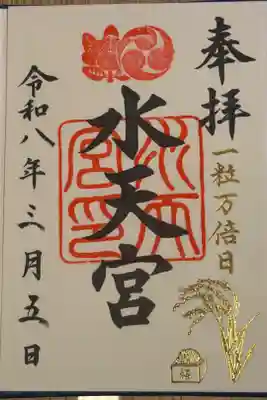 奉拝
一粒万倍日
水天宮
令和八年三月五日